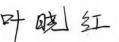 叶晓红